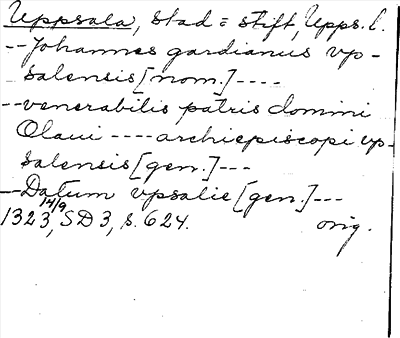 Uppsala, stad = stift, Upps. l.
-- Johannes gardianus vp-
salensis [nom.] ----
-- venerabilis patris domini
Olaui ---- archiepiscopi vp-
salensis [gen.] ---
-- Datum vpsalie [gen.] ---
1323 14/9, SD 3, s. 624. orig.